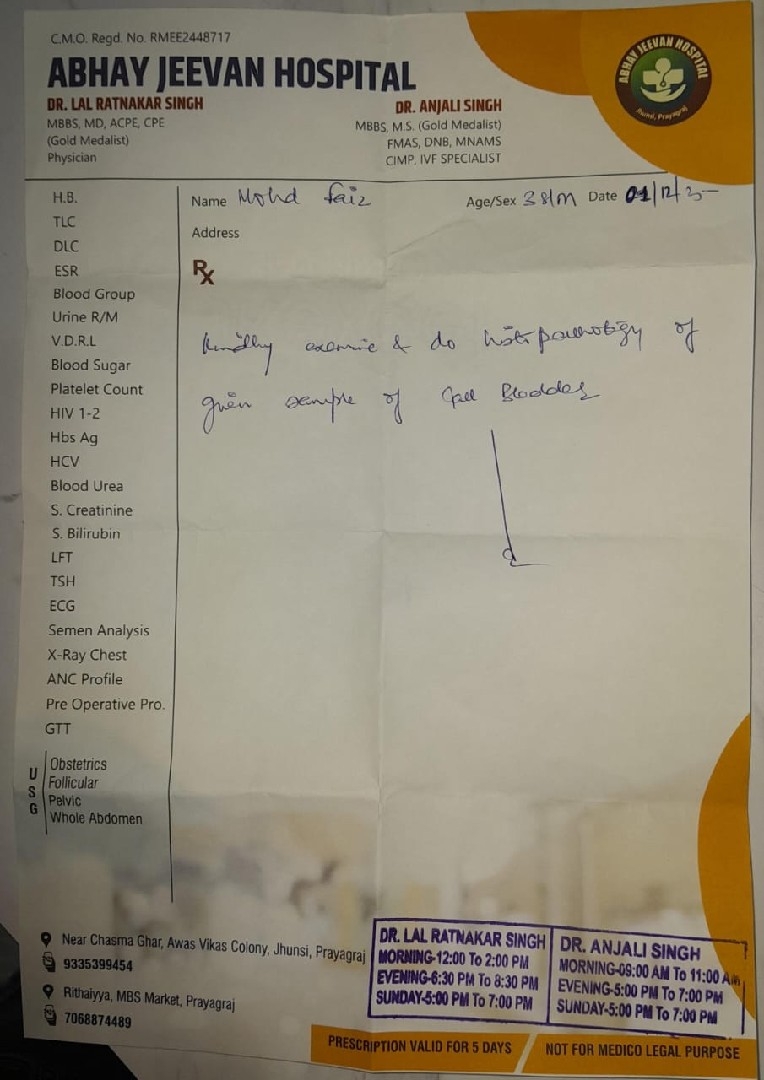 C.M.O. Regd. No. RMEE2448717
ABHAY JEEVAN HOSPITAL
DR. LAL RATNAKAR SINGH
MBBS, MD, ACPE, CPE
(Gold Medalist)
Physician
DR. ANJALI SINGH
MBBS, M.S. (Gold Medalist)
FMAS, DNB, MNAMS
CIMP, IVF SPECIALIST
ABHAY JEEVAN HOSPITAL
Jhunsi, Prayagraj
Name Mohd Faiz
Age/Sex 38/M Date
Address
Rx
Kindly examine & do histopathology of
given sample of Gall Bladder
H.B.
TLC
DLC
ESR
Blood Group
Urine R/M
V.D.R.L
Blood Sugar
Platelet Count
HIV 1-2
Hbs Ag
HCV
Blood Urea
S. Creatinine
S. Bilirubin
LFT
TSH
ECG
Semen Analysis
X-Ray Chest
ANC Profile
Pre Operative Pro.
GTT
USG
Obstetrics
Follicular
Pelvic
Whole Abdomen
Near Chasma Ghar, Awas Vikas Colony, Jhunsi, Prayagraj
9335399454
Rithaiyya, MBS Market, Prayagraj
7068874489
DR. LAL RATNAKAR SINGH
MORNING-12:00 To 2:00 PM
EVENING-6:30 PM To 8:30 PM
SUNDAY-5:00 PM To 7:00 PM
DR. ANJALI SINGH
MORNING-09:00 AM To 11:00 AM
EVENING-5:00 PM To 7:00 PM
SUNDAY-5:00 PM To 7:00 PM
PRESCRIPTION VALID FOR 5 DAYS
NOT FOR MEDICO LEGAL PURPOSE